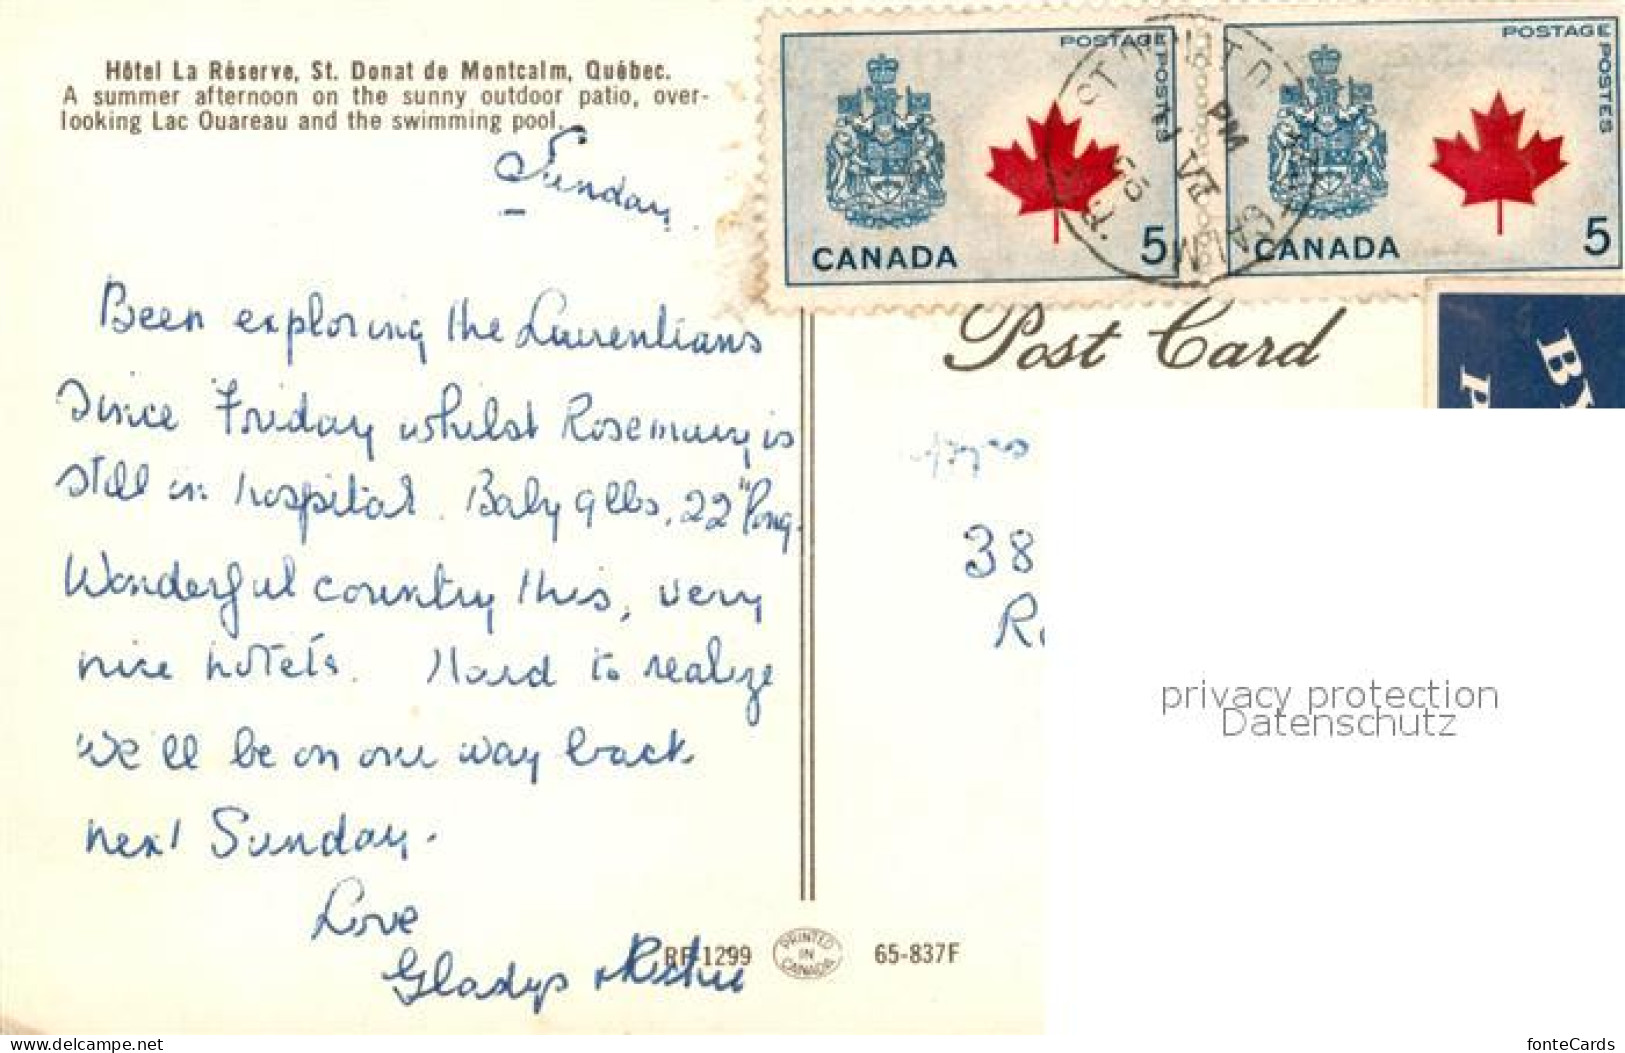 Hôtel La Réserve, St. Donat de Montcalm, Québec.
A summer afternoon on the sunny outdoor patio, over-
looking Lac Ouareau and the swimming pool.
Sunday
Been exploring the Laurentians
since Friday whilst Rosemary is
still in hospital. Baby 9 lbs, 22" long.
Wonderful country this, very
nice hotels. Hard to realize
we'll be on our way back
next Sunday.
Love
Gladys
POSTAGE
POSTES
CANADA 5
POSTAGE
POSTES
CANADA 5
PM
Post Card
BY
38
RF-1299
PRINTED
IN
CANADA
65-837F
privacy protection
Datenschutz
www.delcampe.net
fonteCards